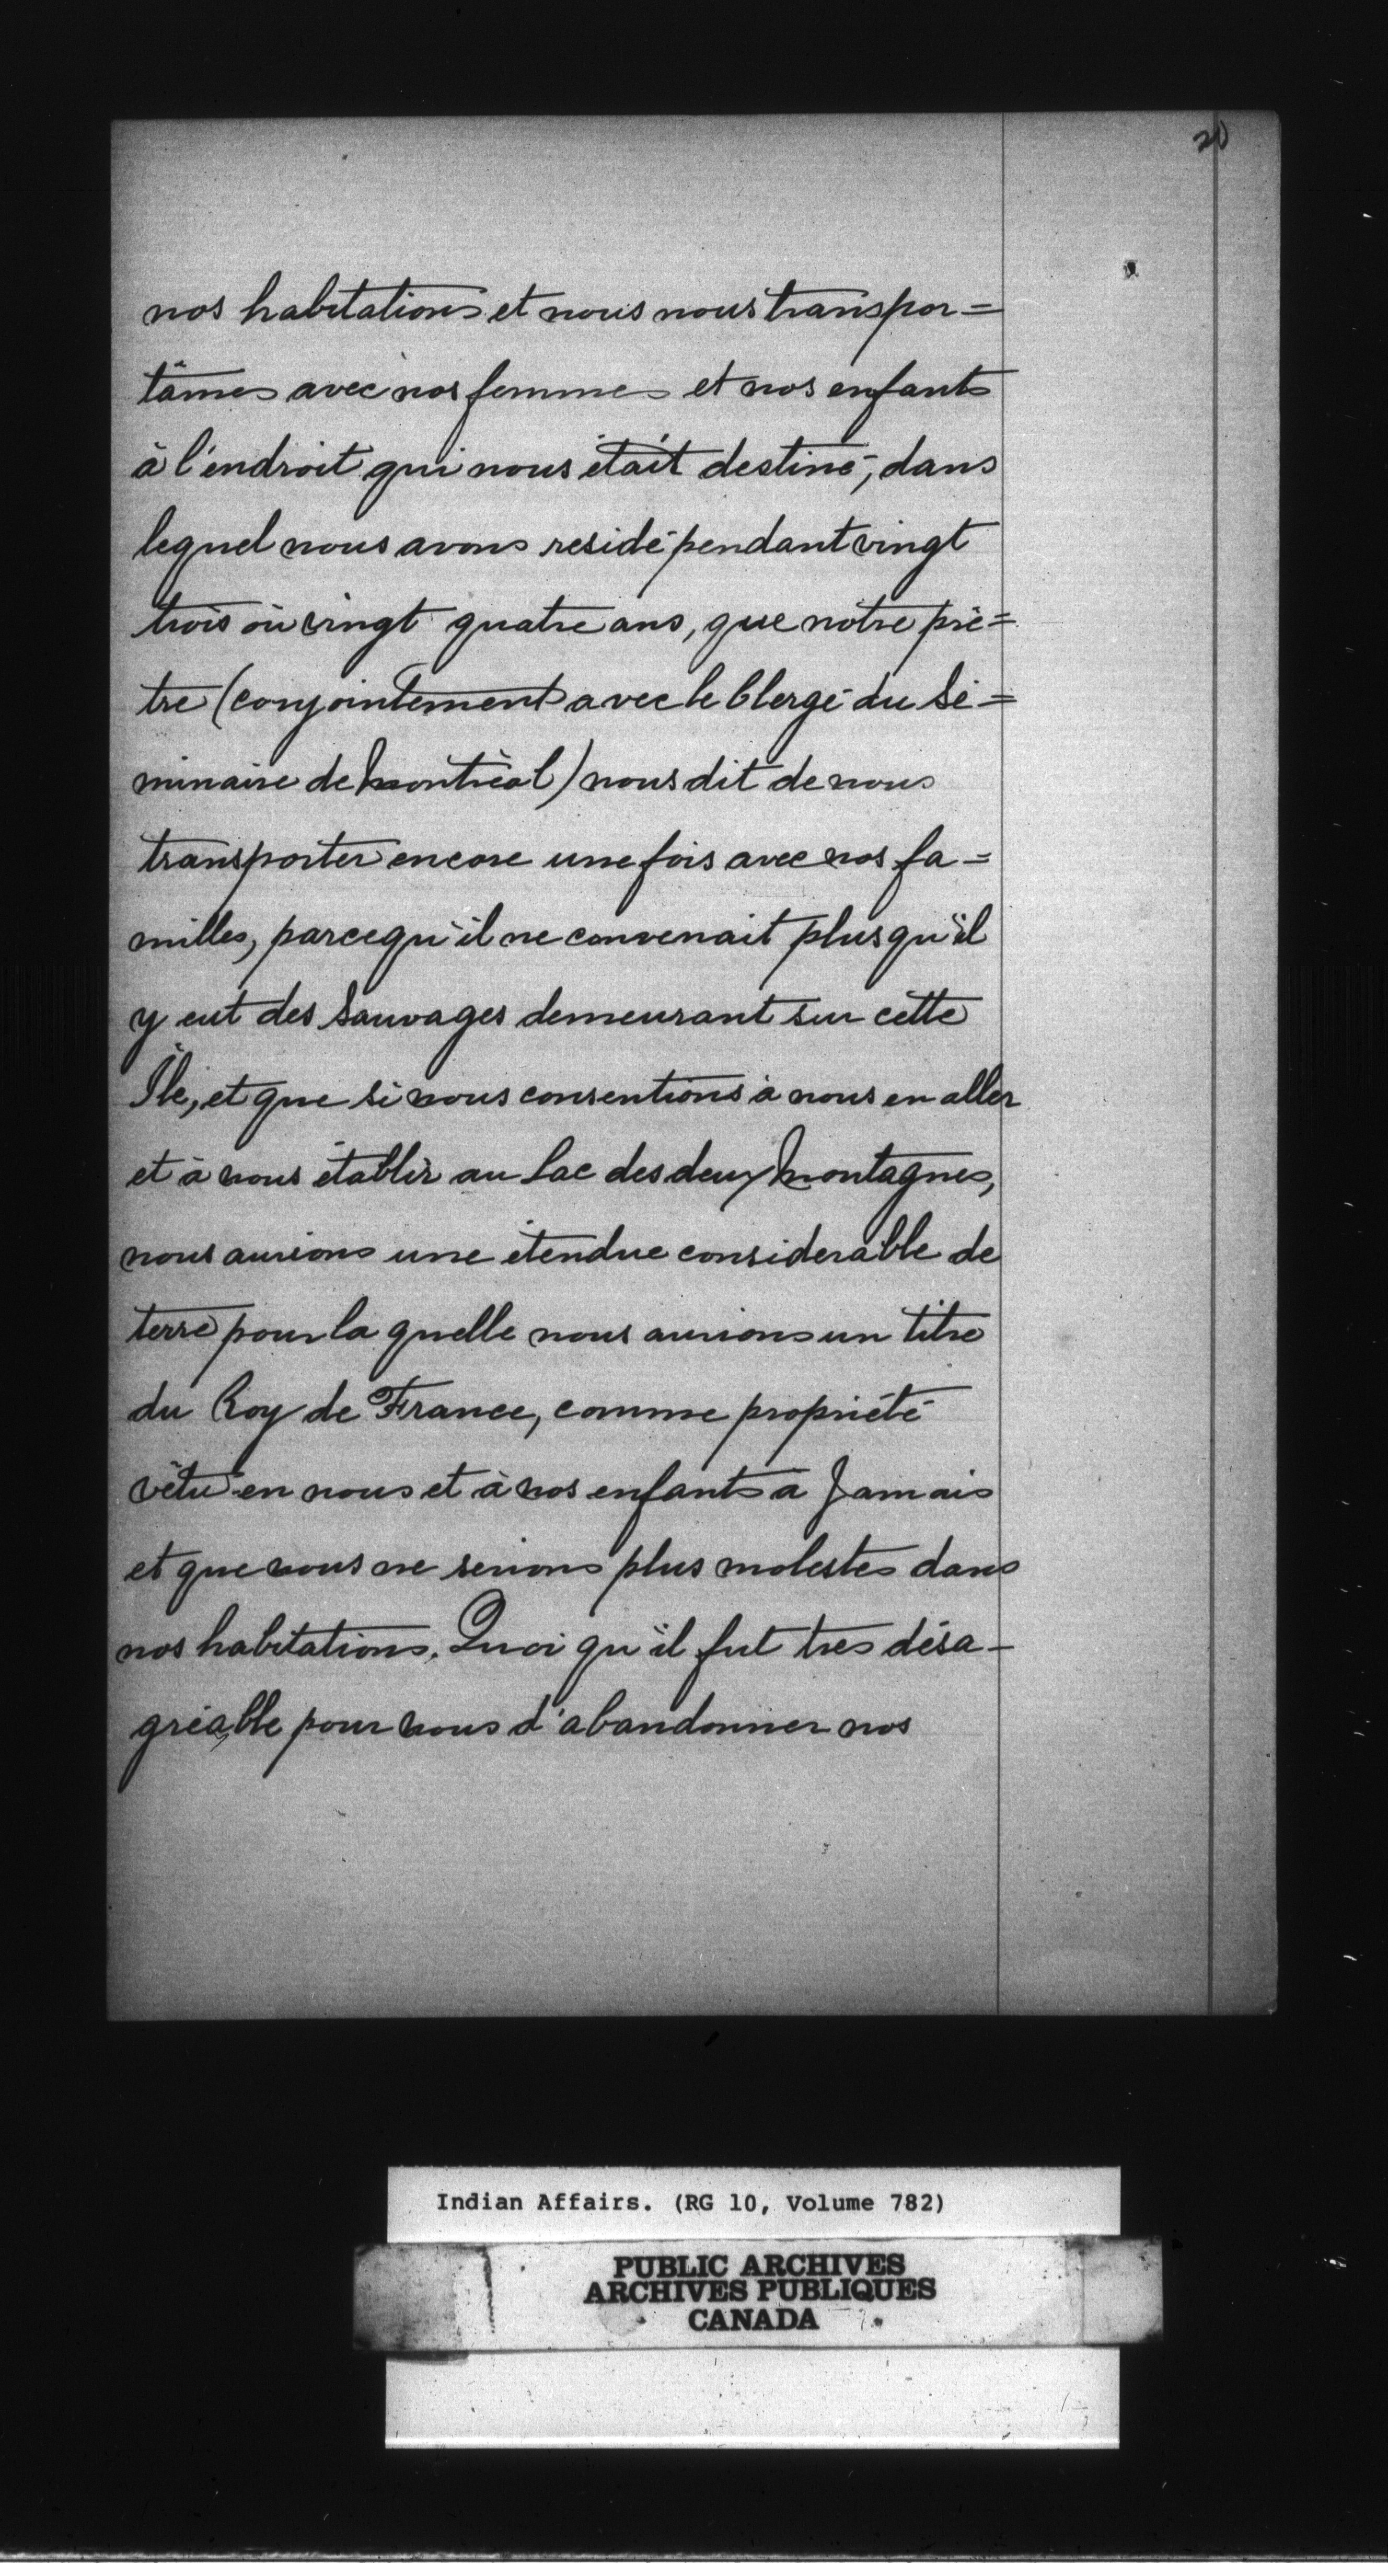 20
nos habitations et nous nous transpor=
tâmes avec nos femmes et nos enfants
à l'endroit qui nous était destiné, dans
lequel nous avons residé pendant vingt
trois où vingt quatre ans, que notre prê=
tre (conjointement avec le Clergé du Sé=
minaire de Montréal) nous dit de nous
transporter encore une fois avec nos fa=
milles, parcequ'il ne convenait plus qu'il
y eut des Sauvages demeurant sur cette
Île, et que si nous consentions à nous en aller
et à nous établir au Lac des deux Montagnes,
nous aurions une étendue considerable de
terre pour la quelle nous aurions un titre
du Roy de France, comme propriété
vêtu en nous et à nos enfants a Jamais
et que nous ne serions plus molestes dans
nos habitations. Quoi qu'il fut tres désa-
gréable pour nous d'abandonner nos
Indian Affairs. (RG 10, Volume 782)
PUBLIC ARCHIVES
ARCHIVES PUBLIQUES
CANADA